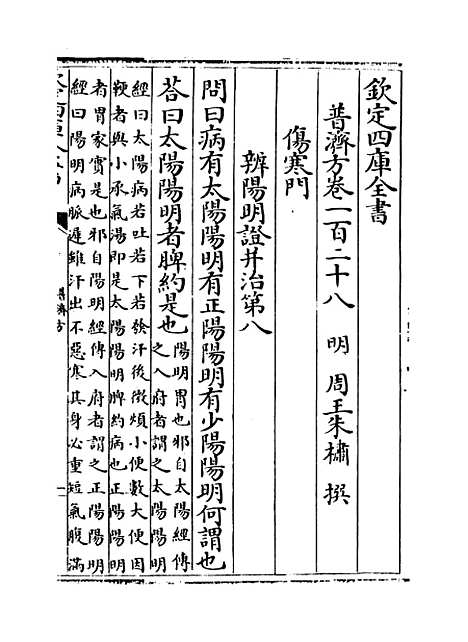 欽定四庫全書
普濟方卷一百二十八　明　周王朱橚　撰
傷寒門
辨陽明證并治第八
問曰病有太陽陽明有正陽陽明有少陽陽明何謂也
答曰太陽陽明者脾約是也陽明胃也邪自太陽經傳
之入府者謂之太陽陽明
經曰太陽病若吐若下若發汗後微煩小便數大便因
鞕者與小承氣湯即是太陽陽明脾約病也正陽陽明
者胃家實是也邪自陽明經傳入府者謂之正陽陽明
經曰陽明病脈遲雖汗出不惡寒其身必重短氣腹滿
普濟方